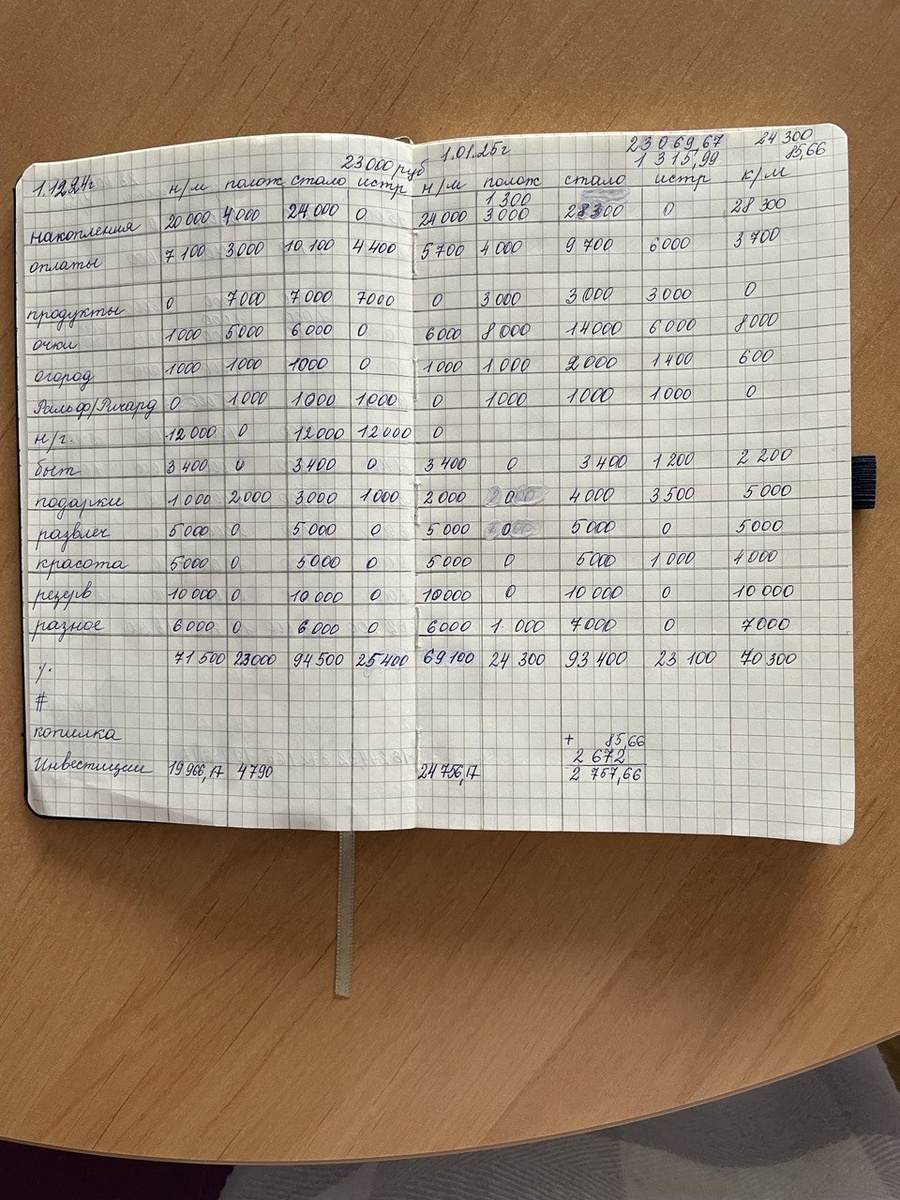 23000 руб
1.12.24г н/м полож стало истр
накопления 20 000 4 000 24 000 0
оплаты 7 100 3000 10 100 4 400
продукты 0 7000 7 000 7000
очки 1000 5000 6 000 0
огород 1000 1000 1000 0
Ральф/Ричард 0 1 000 1 000 1000
н/г. 12 000 0 12 000 12 000
быт 3 400 0 3 400 0
подарки 1 000 2 000 3 000 1 000
развлеч 5 000 0 5 000 0
красота 5 000 0 5 000 0
резерв 10 000 0 10 000 0
разное 6 000 0 6 000 0
71 500 23000 94 500 25 400
#
копилка
Инвестиции 19 966,17 4790
1.01.25г 23 069,67 24 300
1 315,99 85,66
н/м полож стало истр к/м
1 300
24 000 3 000 28 300 0 28 300
5 700 4 000 9 700 6 000 3 700
0 3 000 3 000 3 000 0
6 000 8 000 14 000 6 000 8 000
1 000 1 000 2 000 1 400 600
0 1000 1000 1 000 0
0
3 400 0 3 400 1 200 2 200
2 000 4 000 3 500 5 000
5 000 0 5 000 0 5 000
5 000 0 5 000 1 000 4 000
10 000 0 10 000 0 10 000
6 000 1 000 7 000 0 7 000
69 100 24 300 93 400 23 100 70 300
+ 85,66
2 672
24 756,17 2 757,66